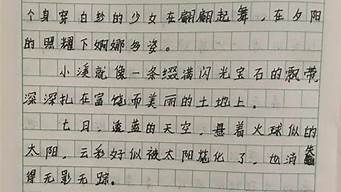 个身穿白纱的少女在翩翩起舞，在夕阳
的照耀下婀娜多姿。
小溪就像一条缀满闪光宝石的飘带
深深扎在富饶而美丽的土地上。
七月，透蓝的天空，悬着火球似的
太阳，云彩好似被太阳烧化了，也消
得无影无踪。